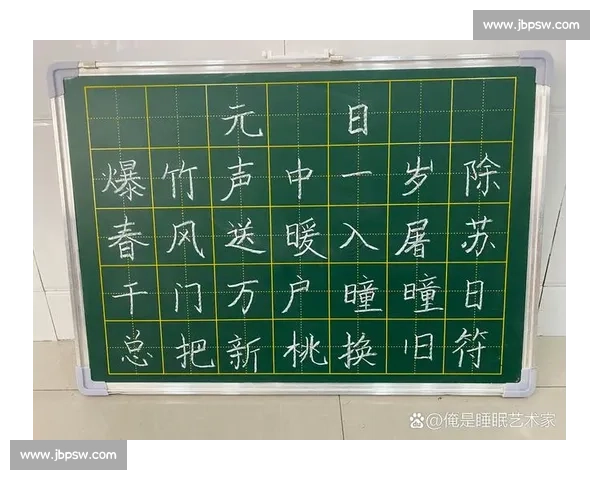 www.jbpsw.com
元日
爆竹声中一岁除
春风送暖入屠苏
千门万户曈曈日
总把新桃换旧符
@俺是睡眠艺术家
www.jbpsw.com